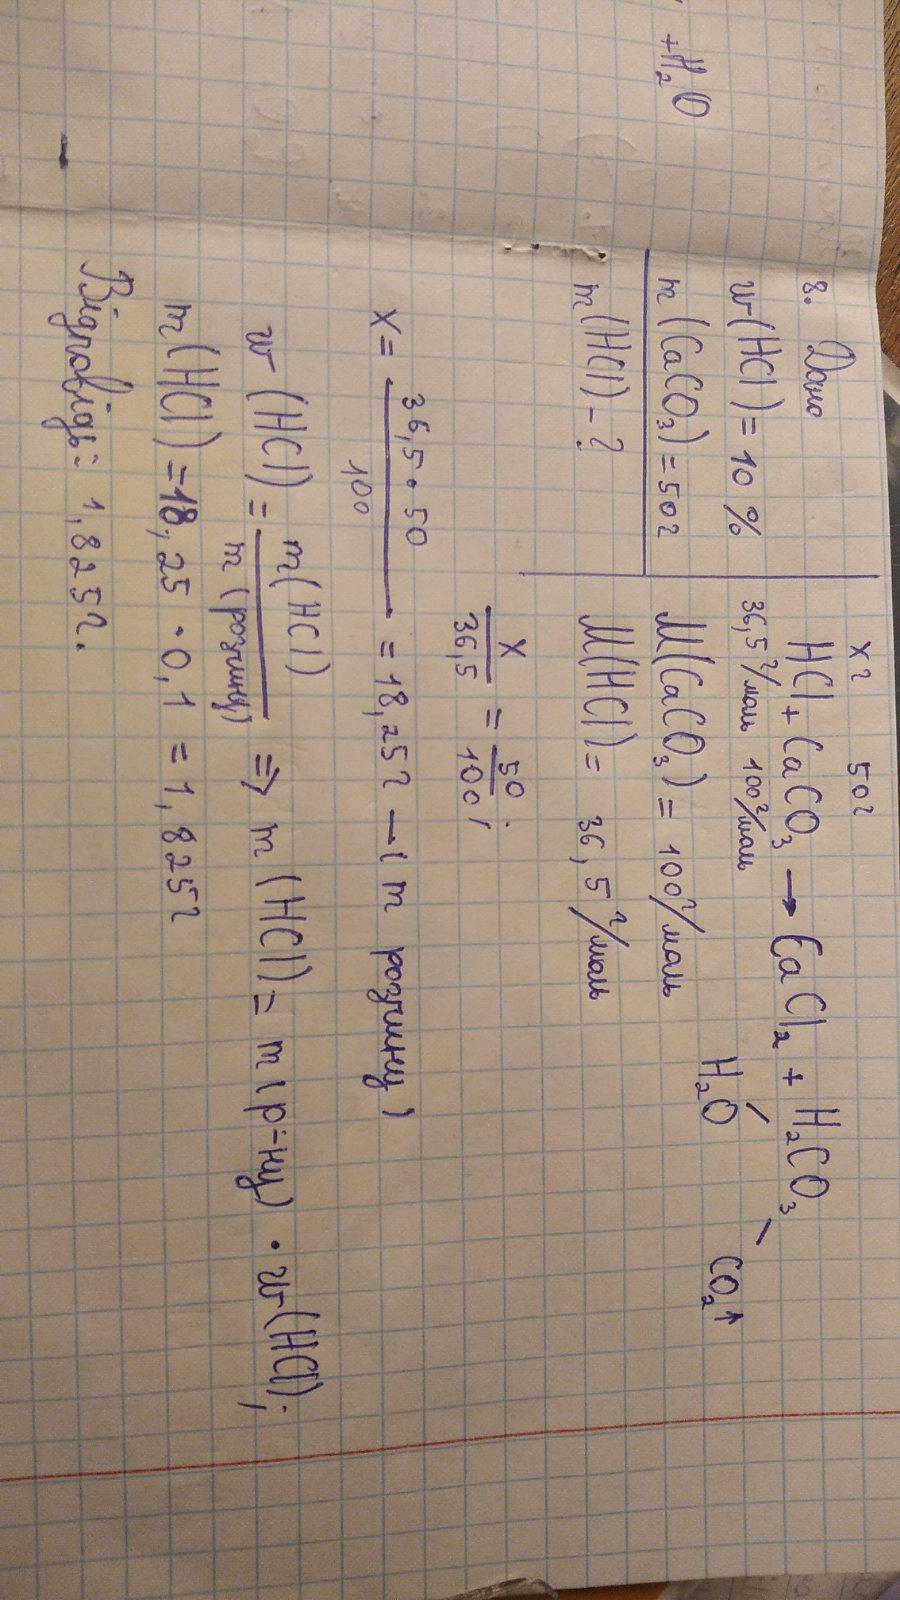 +H₂O
8. Дано
w(HCl) = 10 %
m(CaCO₃) = 50г
m(HCl) - ?
x г 50г
HCl + CaCO₃ → CaCl₂ + H₂CO₃
36,5 г/моль 100 г/моль H₂O CO₂↑
M(CaCO₃) = 100 г/моль
M(HCl) = 36,5 г/моль
x/36,5 = 50/100;
x = 36,5 · 50/100 = 18,25г – (m розчину)
w(HCl) = m(HCl)/m(розчину) ⇒ m(HCl) = m(р-ну) · w(HCl);
m(HCl) = 18,25 · 0,1 = 1,825г
Відповідь: 1,825г.